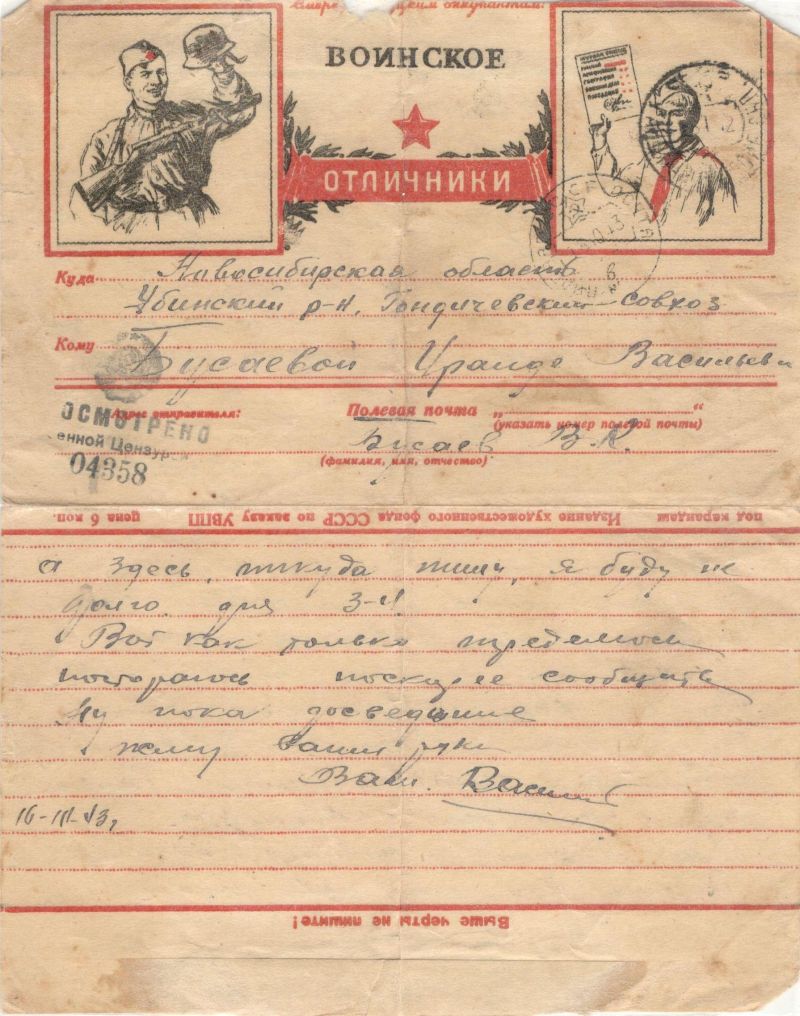 Смерть немецким оккупантам!
ВОИНСКОЕ
ОТЛИЧНИКИ
Куда Новосибирская область
Убинский р-н, совхоз
Кому Бусаевой Ираиде Васильевн
Адрес отправителя: Полевая почта „ “
(указать номер полевой почты)
Бусаев В.К.
(фамилия, имя, отчество)
ОСМОТРЕНО
енной Цензур
04358
под карандаш Издание художественного фонда СССР по заказу УВПП цена 6 коп.
а здесь, откуда пишу, я буду не
долго дня 3-4
Вот как только
постараюсь поскорее сообщить
Ну пока досведание
жму ваши руки
Ваш. Василий
16-III-43г
Выше черты не пишите!